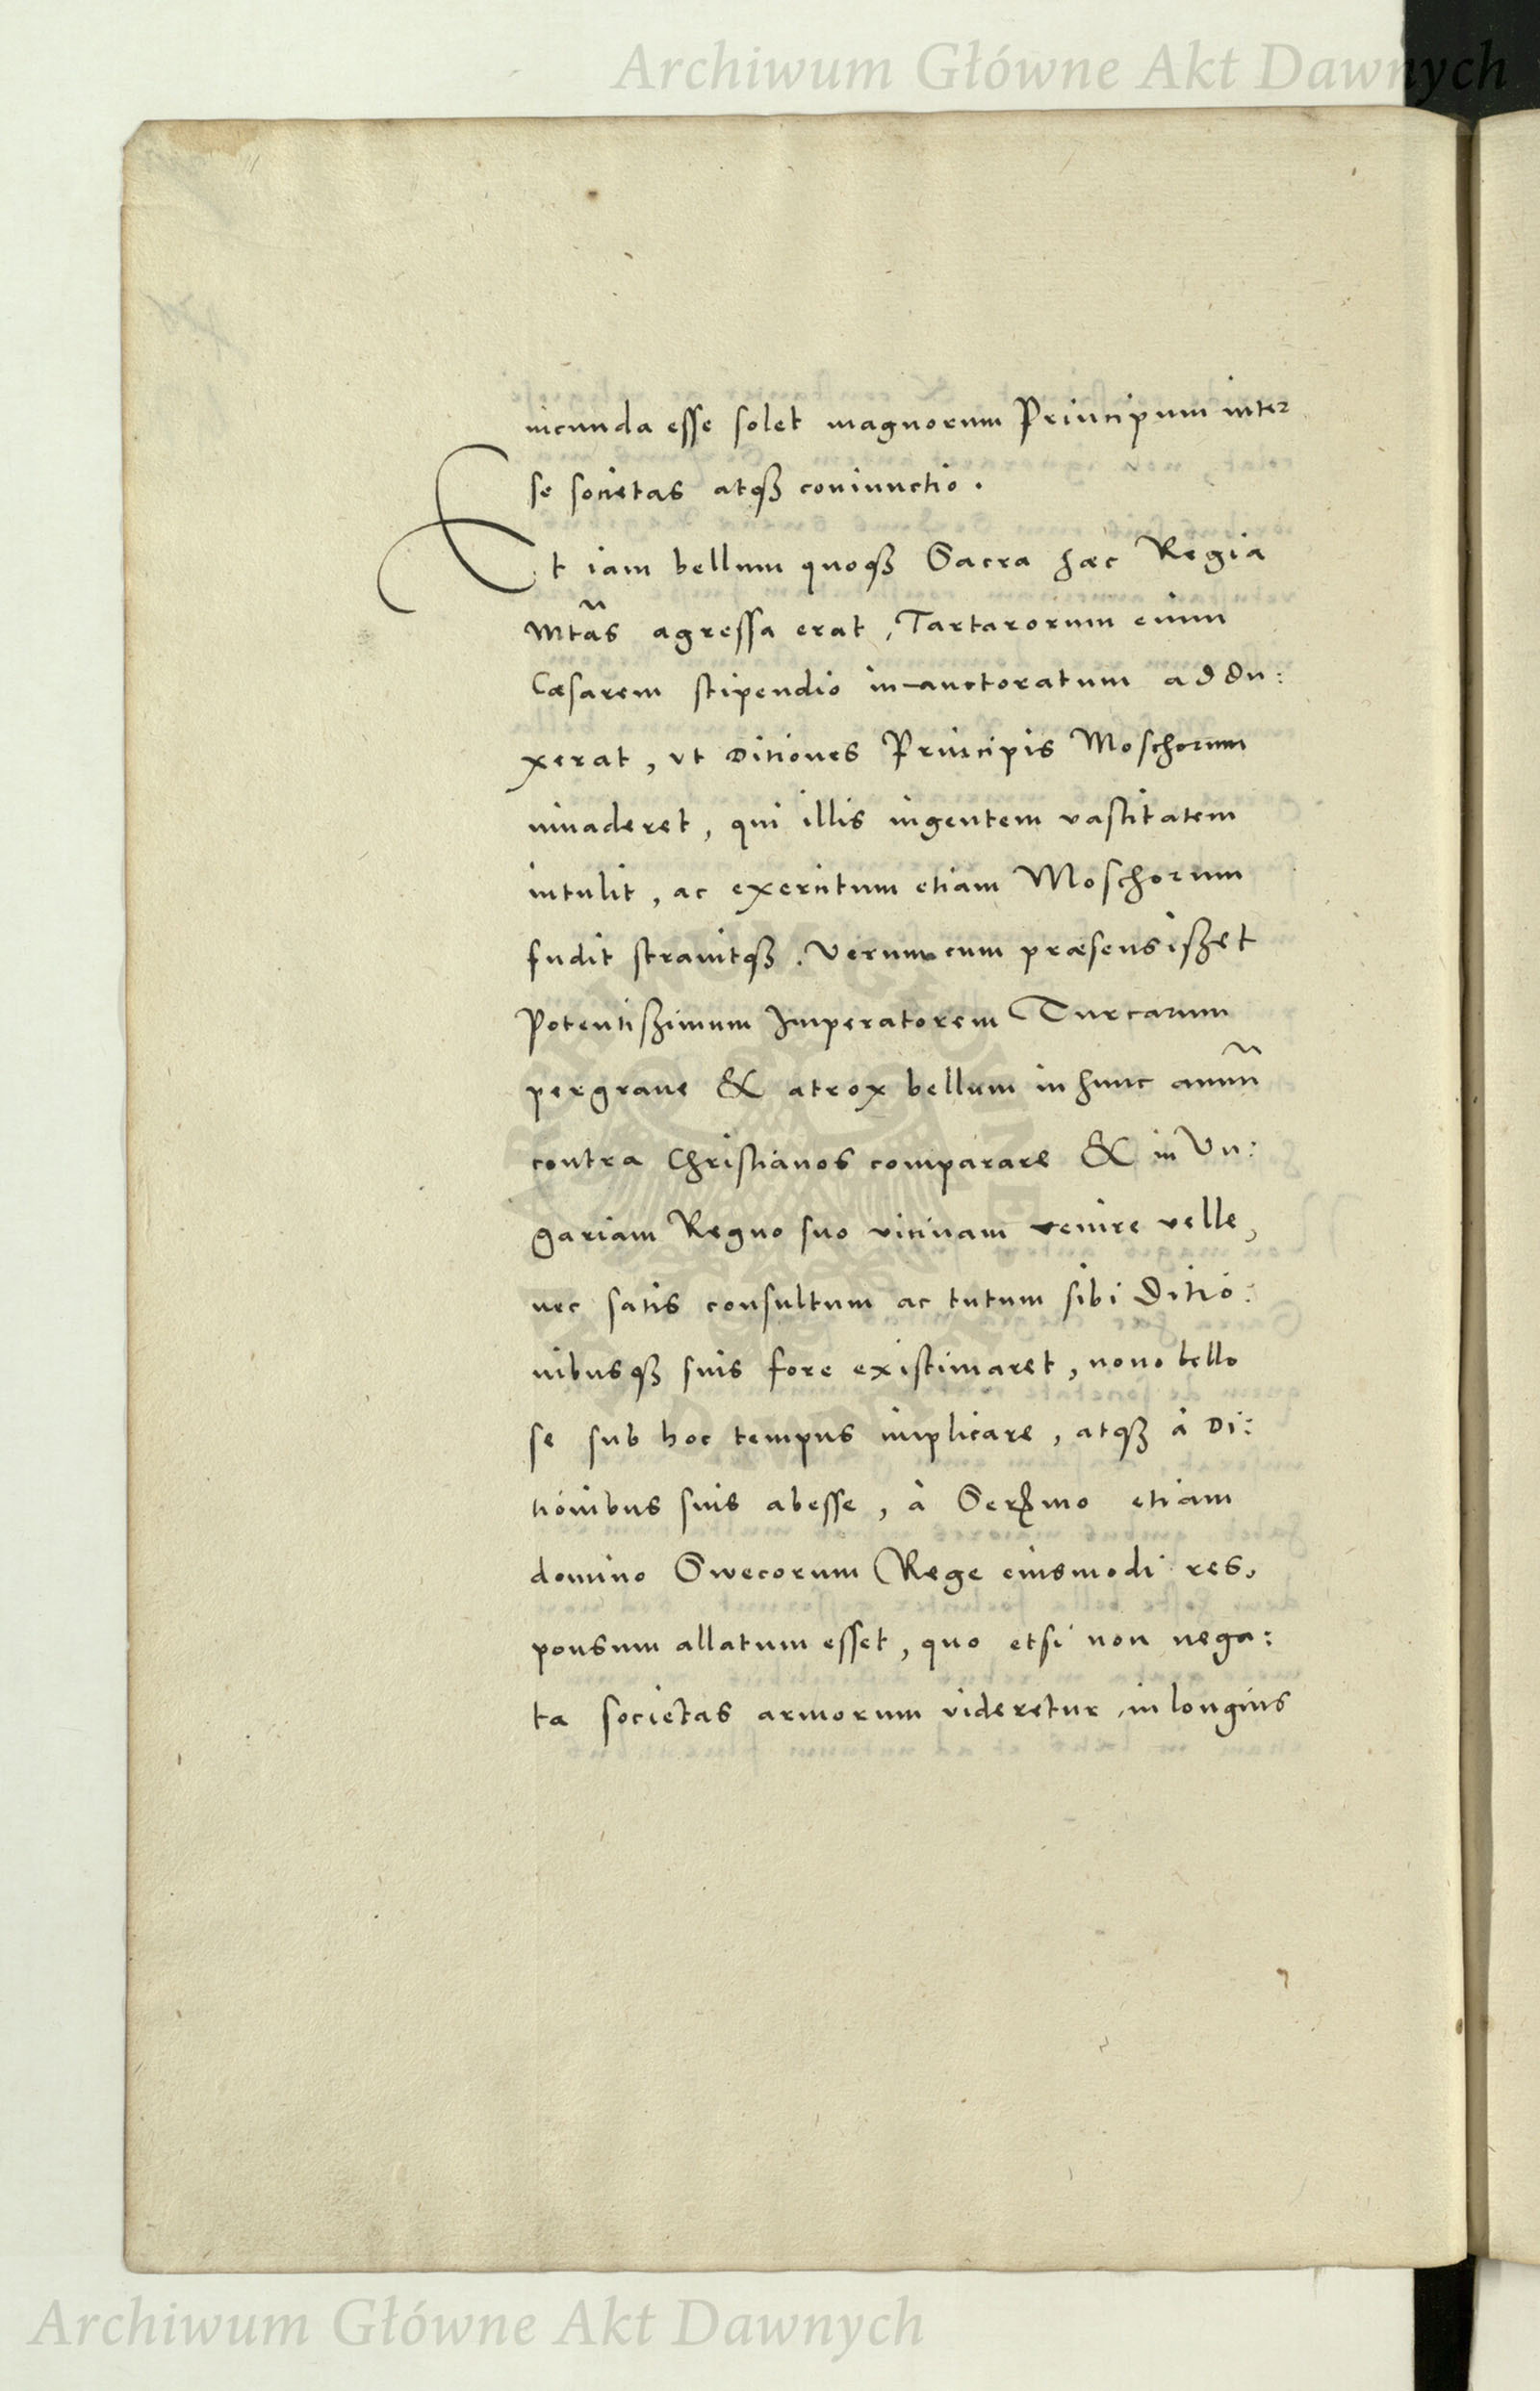 Archiwum Główne Akt Dawnych
iucunda esse solet magnorum Principum inter
se societas atqȝ coniunctio.
Et iam bellum quoqȝ Sacra hæc Regia
Mtãs agressa erat, Tartarorum enim
Cæsarem stipendio in-auctoratum addu:
xerat, vt ditiones Principis Moschorum
inuaderet, qui illis ingentem vastitatem
intulit, ac exercitum etiam Moschorum
fudit strauitqȝ. Verum cum præsensißet
Potentißimum Imperatorem Turcarum
pergraue & atrox bellum in hunc annũ
contra Christianos comparare & in Vn:
gariam Regno suo vicinam venire velle,
nec satis consultum ac tutum sibi ditio:
nibusqȝ suis fore existimaret, nouo bello
se sub hoc tempus implicare, atqȝ à Di:
tionibus suis abesse, à Serꝭmo etiam
domino Swecorum Rege eiusmodi res,
ponsum allatum esset, quo etsi non nega:
ta societas armorum videretur, in longius
Archiwum Główne Akt Dawnych